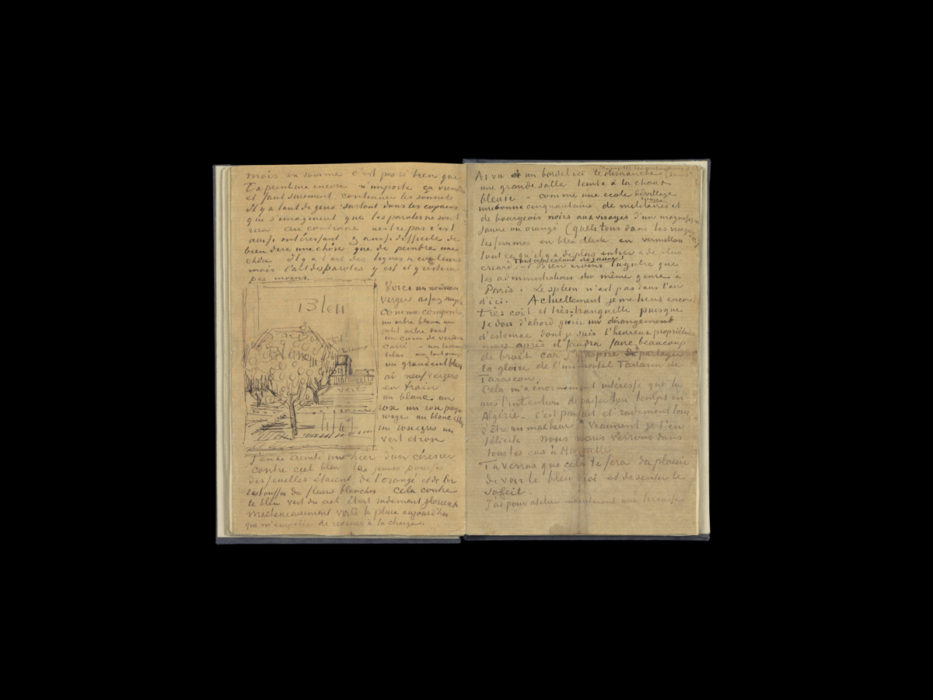 mais en somme c'est pas si bien que
Ta peinture encore n'importe ça viendra
et faut surement continuer les sonnets
Il y a tant de gens surtout dans les copains
qui s'imaginent que les paroles ne sont
rien au contraire n'est ce pas c'est
aussi intéressant & aussi difficile de
bien dire une chose que de peindre une
chose il y a l'art des lignes & couleurs
mais l'art des paroles y est et y restera
pas moins.
Voici un nouveau
verger assez simple
comme composition
un arbre blanc un
petit arbre vert
un carré de verdure
un terrain
lilas un toit
un grand ciel bleu
ai neuf vergers
en train
un blanc un
rose un rose presque
rouge un blanc & bleu
un rose & gris un
vert et rose
J'en ai éreinté un hier d'un cérisier
contre ciel bleu les jeunes pousses
des feuilles étaient de l'orangé et de l'or
les touffes de fleurs blanches cela contre
le bleu vert du ciel était rudement glorieux
Malheureusement voilà la pluie aujourd'hui
qui m'empêche de revenir à la charge.
Ai vu un bordel ici le dimanche
une grande salle teinte à la chaux
bleuie – comme une école de village
une bonne cinquantaine de militaires et
de bourgeois noirs aux visages d'un magnifique
jaune ou orangé (quels tons dans les visages
les femmes en bleu en vermillon
tout ce qu'il y a de plus entier & de plus
criard. Tout cela
les administrations du même genre à
Paris. Le spleen n'est pas dans l'air
d'ici. Actuellement je me tiens encore
très coit et très tranquille puisque
je dois d'abord guérir un dérangement
d'estomac dont je suis l'heureux propriétaire
mais après il faudra faire beaucoup
de bruit car j'aspire à partager
la gloire de l'immortel Tartarin de
Tarascon.
Cela m'a énormément intéressé que tu
aies l'intention de passer ton temps en
Algérie. C'est parfait et rudement loin
d'être un malheur. Vraiment je t'en
félicite nous nous verrons dans
tous les cas à Marseille
Tu verras que cela te fera du plaisir
de voir le bleu ici et de sentir le
soleil
J'ai pour atelier maintenant une terrasse